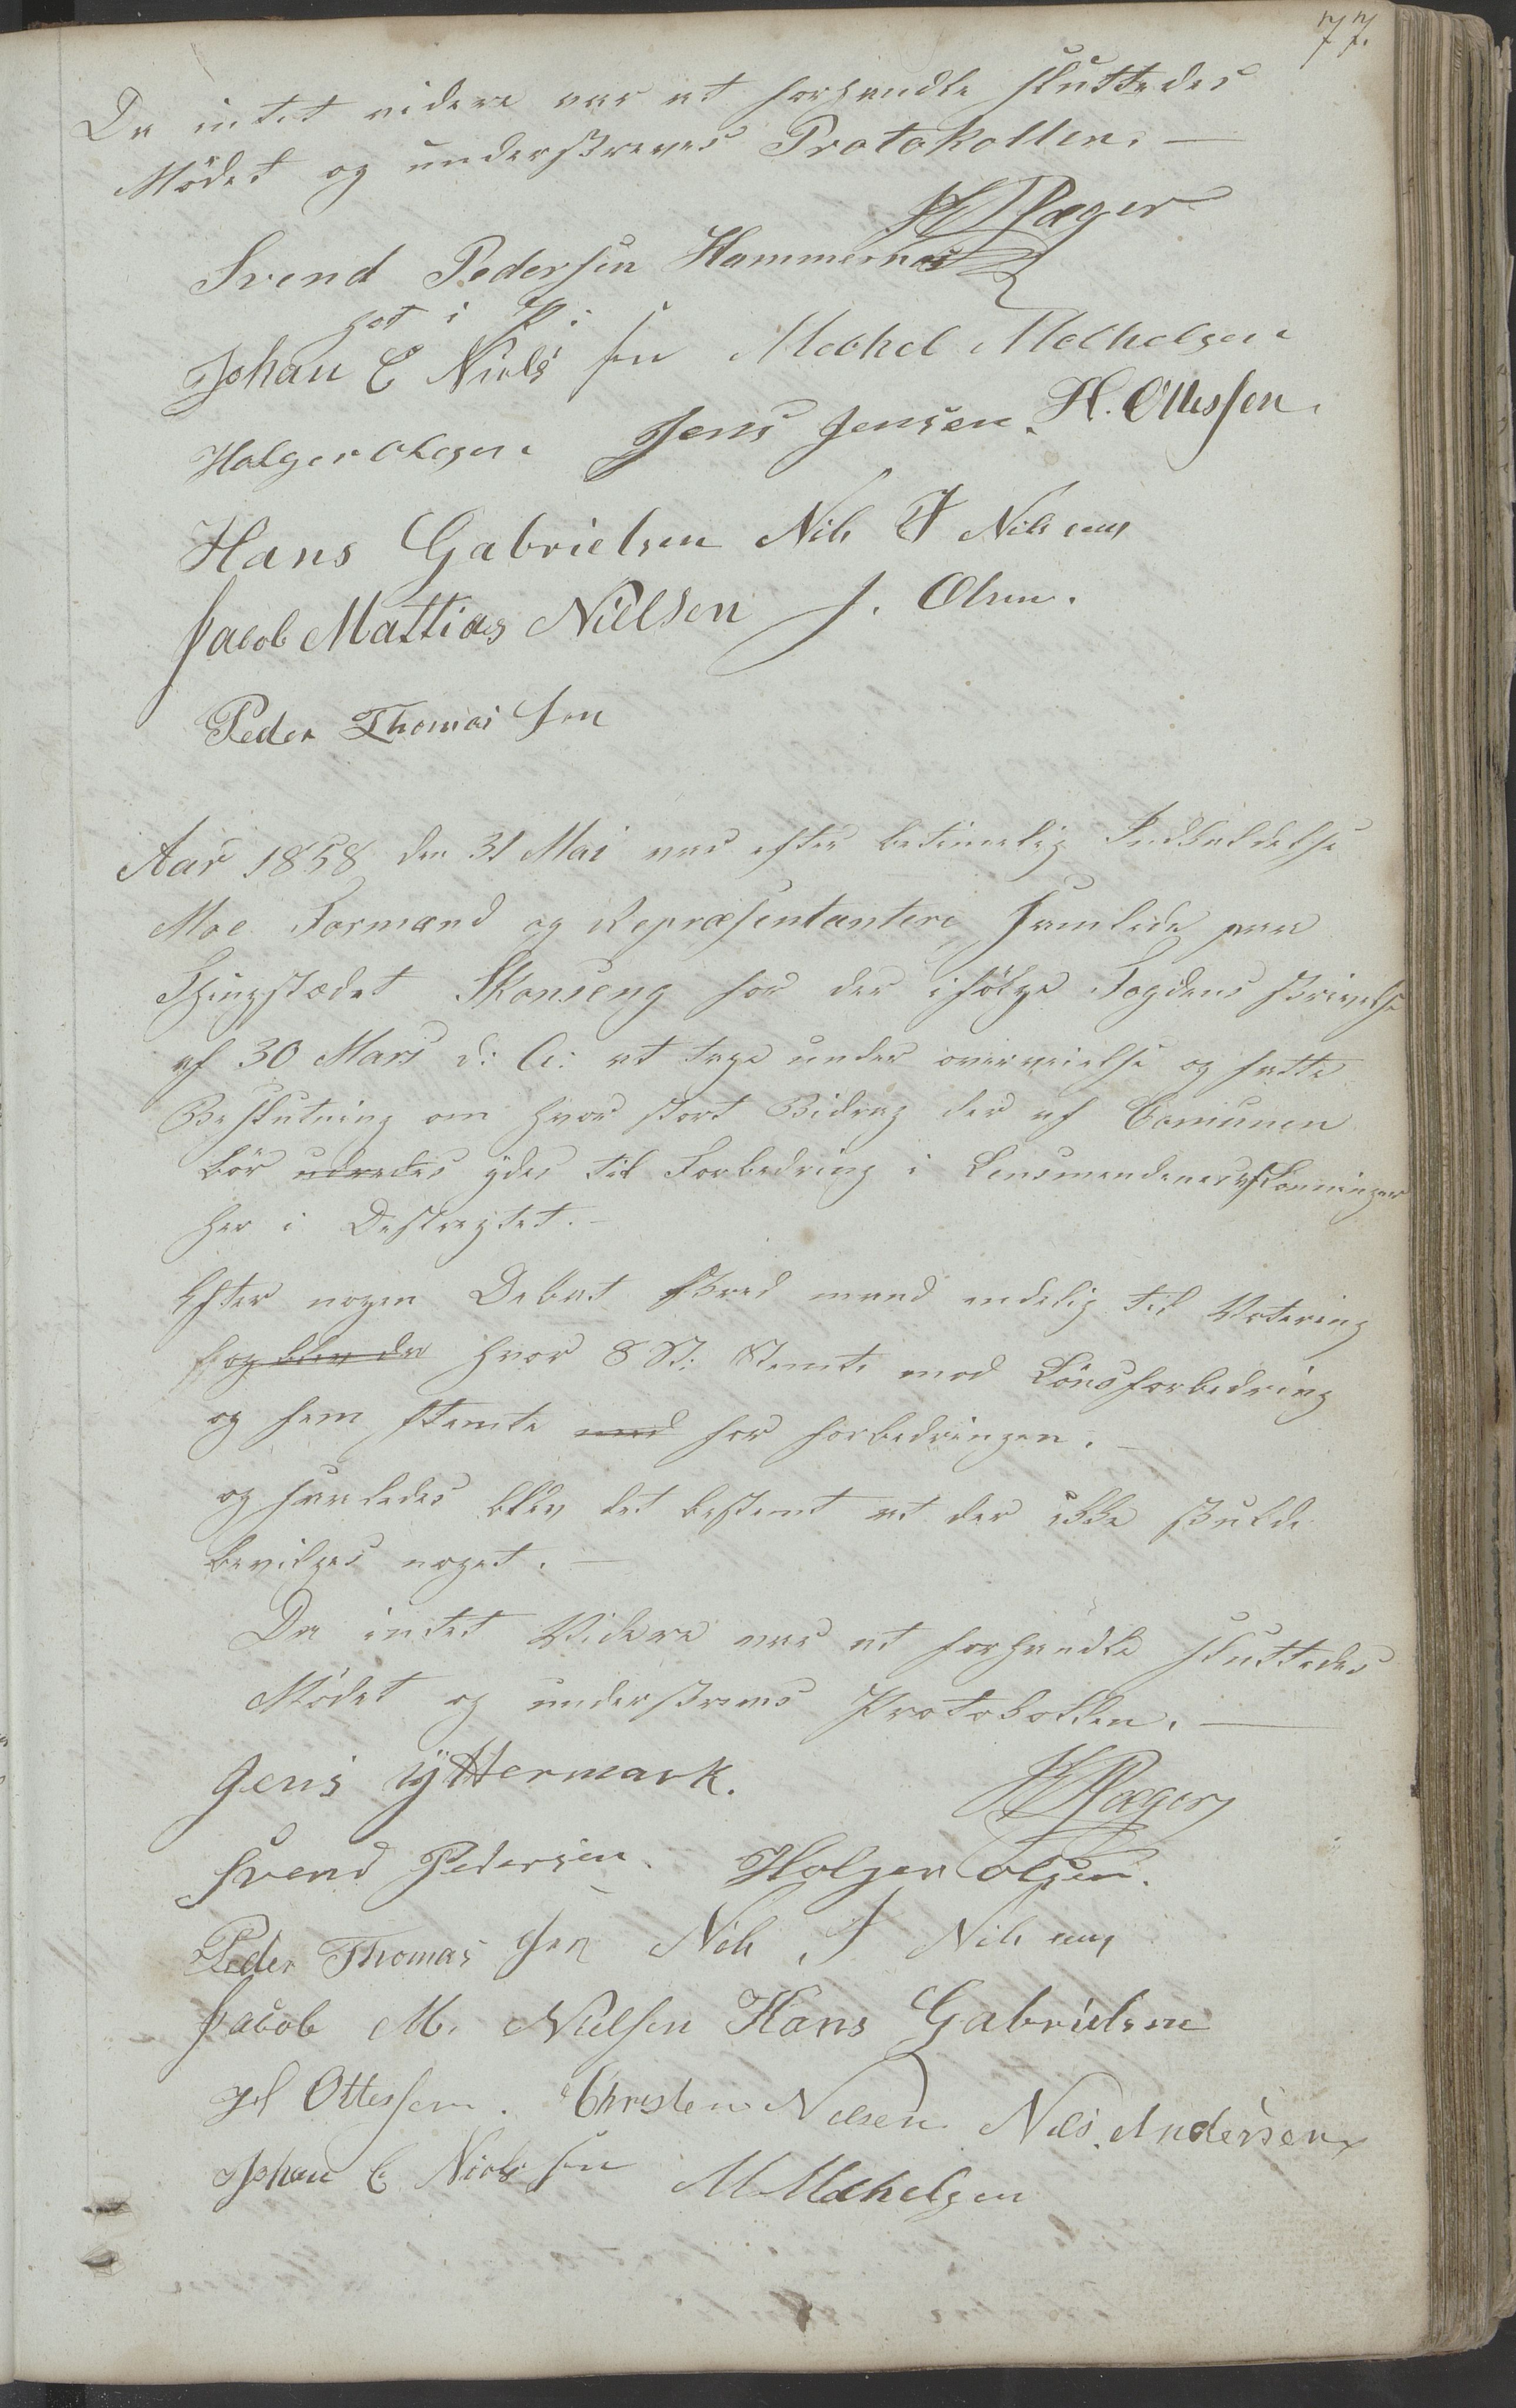 77.
Da intet videre var at forhandle sluttedes
Mödet og underskreves Protokollen. —
Plæger
Svend Pedersen Hammernæs
Johan C Niels sen Mechel Mechelsen
Holger Olesen Jens Jensen. H. Ottessen.
Hans Gabrielsen Nils J Nilsen
Jacob Mattias Nielsen J. Olsen.
Peder Thomas sen
Aar 1858 den 31 Mai var efter betimelig Indkaldelse
Moe Formænd og Repræsentantere samlede paa
Thingstædet Skonseng for der ifölge Fogdens skrivelse
af 30 Mars d: A: at tage under overveielse og fatte
Beslutning om hvor stort Bidrag der af Comunen
bör udredes ydes til Forbedring i Lensmendenes Lönninger
her i Destrigtet. –
Efter nogen Debat skred mand endelig til Votering
og blev da hvor 8 St: Stemte mod Lönsforbedring
og fem stemte mod for forbedringen. –
og saaledes blev det bestemt at der ikke skulde
bevilges noget. —
Da intet Videre var at forhandle sluttedes
Mödet og underskreves Protokollen. —
Jens Yttermark. Plæger
Svend Pedersen. Holger Olsen.
Peder Thomas sen Nils J Nilsen
Jacob M. Nielsen Hans Gabrielsen
H Ottessen. Christen Nilsen Nils Andersen
Johan C Niels sen M Mechelsen